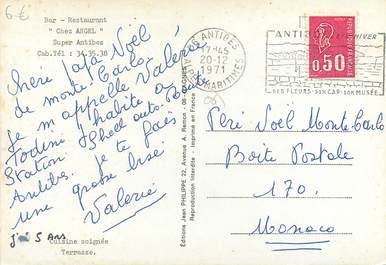 6€
Bar - Restaurant
" Chez ANGEL "
Super Antibes
Cab.Tél : 34.35.38
Chéri Papa Noël
de monte-Carlo
Je m'appelle Valérie
Todini j'habite a
Station Shell auto-Route
Antibes. je te fais
une grosse bise
Valerie
j'ai 5 Ans
Cuisine soignée
Terrasse.
Editions Jean PHILIPPE 22, Avenue A. Ramon - 06
Reproduction Interdite - Imprimé en
ANTIBES
17-45
20-12
1971
ALPES MARITIMES
ANTIBES
HIVER
SES FLEURS-SON CAP-SON MUSÉE
0,50
Père Noël Monte-Carlo
Boite Postale
170.
Monaco